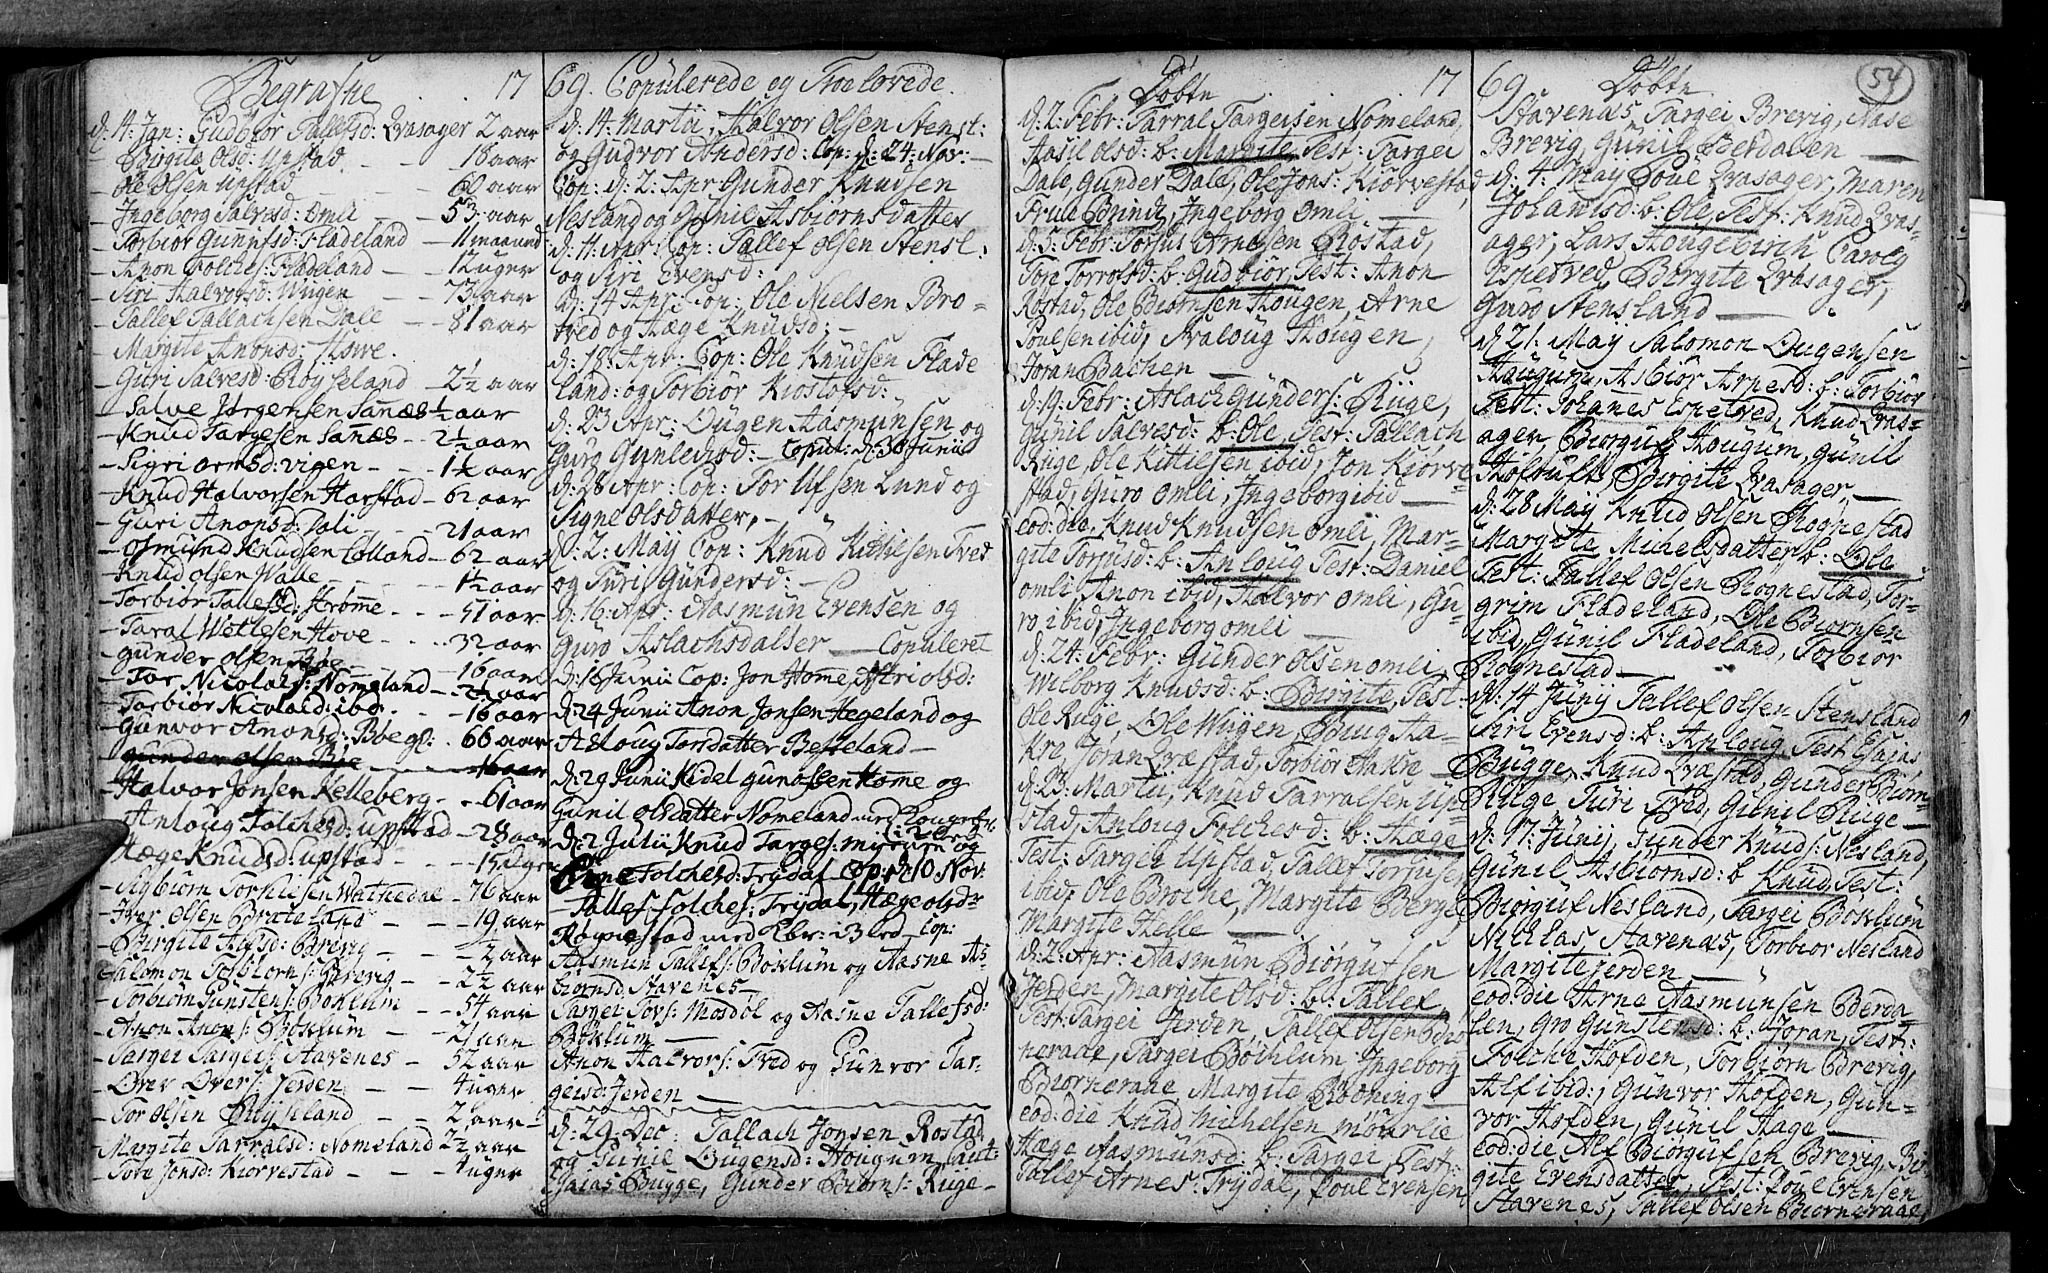 Begrafne 17
d. 14 Jan: Gudbiør Tallefsd: Qvasager 2 aar
- Birgite Olsd: Upstad - - 18 aar
- Ole Olsen Upstad - - 60 aar
- Ingeborg Salvesd: Omli - - 53 aar
- Torbiør Gunufsd: Fladeland - 11 maaned
- Anon Folches: Fladeland - - 12 uger
- Siri Halvorsd: Wiigen - - 73 aar
- Tallef Tallachsen Dale - - 81 aar
- Margite Anonsd: Howe.
- Guri Salvesd: Røyseland - 2½ aar
- Salve Jørgensen Sanæs - ½ aar
- Knud Targesen Sanæs - 2½ aar
- Sigri Ormsd: Vigen - - 1½ aar
- Knud Halvorsen Harstad - 62 aar
- Guri Anonsd: Joli - - 21 aar
- Osmund Knudsen Lolland - 62 aar
- Knud Olsen Walle - - 1½ aar
- Torbiør Tallefsd: Home - - 51 aar
- Taral Wetlesen Hove - - 32 aar
- Gunder Olsen Bøe - - 16 aar
- Tor Nicolais: Nomeland - 2½ aar
- Torbiør Nicolaid: ibd. - - 16 aar
- Gunvor Anonsd: Bbegl: - 66 aar
- Gunder Olsen Bøe - 16 aar
- Halvor Jonsen Kelleberg - - 61 aar
- Anloug Folchesd: Upstad - 28 aar
- Hæge Knudsd: Upstad - - 15 uger
- Sigbiørn Torkielsen Wathnedal - 76 aar
- Iver Olsen Brateland - - 19 aar
- Birgite Alfsd: Brevig - - ½ aar
- Salomon Torbiorns: Brevig - 2½ aar
- Torbiørn Gunstens: Bøklum - 54 aar
- Anon Anons: Bøklum - - 21 aar
- Targei Targeis: Stavenes - - 52 aar
- Over Overs: Jerden - - 4 uger
- Tor Olsen Røyseland - - 2½ aar
- Margite Tarralsd: Nomeland 2½ aar
- Tore Jonsd: Kiorvestad - - 4 uger
69. Copulerede og Troelovede.
d. 14 Martii, Halvor Olsen Stensl:
og Gudvor Andersd: Cop: d: 24. Nov: -
Cop: d: 2: Apr Gunder Knudsen
Nesland og Gunil Asbiørnsdatter
d: 11. Apr: Cop: Tallef Olsen Stensl:
og Siri Evensd:
d: 14 Apr: Cop: Ole Nielsen Bro-
tved og Hæge Knudsd: -
d: 18. Apr: Cop: Ole Knudsen Flade
land: og Torbiør Kiostolsd:
d: 23 Apr: Ougen Aasmunsen og
Guro Gunlechsd: - Copul: d: 30 Junii
d: 28 Apr: Cop: Tor Ufsen Lund og
Signe Olsdatter, -
d: 2: Maij Cop: Knud Kittilsen Tved
og Turi Gundersd: -
d: 16 Apr: Aasmun Evensen og
Guro Aslachsdatter - Copuleret
d: 16 Junii Cop: Jon Home Astri Olsd:
d: 24 Junii Anon Jonsen Hegeland og
Asloug Torsdatter Besteland -
d: 29 Junii Kidel Gunolsen Home og
Gunil Olsdatter Nomeland med
d: 2 Julii Knud Targes: og
Folchesd: Trydal Cop: d 10. Nov.
- Tallef Folches: Trydal, Hæge Olsdr
Rognestad med Ebr: 23 Cop:
Aasmun Tallefs: Bøklum og Aasne As-
biornsd: Stavenes -
Targei Tors: Mosdøl og Aasne Tallefsd:
Bøklum -
Anon Halvors: Tved og Gunvor Tar-
geisd: Jerden -
d: 29. Dec: Tallach Jonsen Rostad
og Gunil Ougensd: Hougum Caut:
Esaias Bugge, Gunder Biorns: Ruge -
Døbte 17
d: 2: Febr: Tarral Targeisen Nomeland,
Aasil Olsd: b: Margite, Test: Targei
Dale, Gunder Dale, Ole Jons: Kiorvestad
Frue Brinck, Ingeborg Omli -
d: 5: Febr: Torjus Arnesen Rostad,
Tore Torrolsd: b: Gudbiør, Test: Anon
Rostad, Ole Biornsen Hougen, Arne
Poulsen ibid, Svaloug Hougen,
Joran Bachen -
d: 19. Febr: Aslach Gunders: Ruge,
Gunil Salvesd: b: Ole, Test: Tallach
Ruge, Ole Kittilsen ibid, Jon Kiorve-
stad, Guro Omli, Ingeborg ibid -
eod: die, Knud Knudsen Omli, Mar-
gite Torjusd: b: Anloug Test: Daniel
Omli, Anon ibid, Halvor Omli, Gu-
ro ibid, Ingeborg Omli -
d: 24: Febr: Gunder Olsen Omli,
Wilborg Knudsd: b: Birgite, Test:
Ole Ruge, Ole Wiigen, Boug Aa-
kre, Joran Qvæstad, Torbiør Aakre -
d: 23. Martii, Knud Tarralsen Up-
stad, Anloug Folchesd: b: Hæge
Test: Targei Upstad, Tallef Torjusen
ibid, Ole Broche, Margite Berge,
Margite Helle -
d: 2: Apr: Aasmun Biørgufsen
Jerden, Margite Olsd: b: Tallef,
Test: Targei Jerden, Tallef Olsen Biør-
neraae, Targei Bøchlum Ingeborg
Biorneraae, Margite Bødning -
eod: die Knud Michelsen Møarlie
Hæge Aasmunsd: b: Targei, Test:
Tallef Arnes: Trydal, Poul Evensen
69 Døbte 54
Stavenæs, Targei Brevig, Aase
Brevig, Gunil Berdalen -
d: 4: Maij Poul Qvasager, Maren
Johansd: b: Ole, Test: Knud Qvas-
ager, Lars Hougebirch Carl og
Espetved, Birgite Qvasager,
Guro Stensland -
d: 21. Maij Salomon Ougensen
Hougum, Asbiør Arnesd: b: Torbiør
Test: Johanes Espetved, Knud Qvas-
ager, Biørguf Hougum, Gunil
Holtuft, Birgite Qvasager, -
d: 28 Maij Knud Olsen Rognestad
Margite Michelsdatter b: Ole
Test: Tallef Olsen Rognestad, Tor-
grim Fladeland, Ole Biornsen
ibid, Gunil Fladeland, Torbiør
Rognestad -
d: 14 Junij Tallef Olsen Stensland
Siri Evensd: b: Anloug Test Esaias
Bugge, Knud Qvæstad, Gunder Biorn-
Ruge Turi Tved, Gunil Ruge -
d: 17. Junij, Gunder Knuds: Nesland,
Gunil Asbiornsd: b: Knud, Test:
Biørguf Nesland, Targei Bøklum
Nichlas Stavenæs, Torbiør Nesland
Margite Jerden -
eod: die Arne Aasmunsen Berda-
len, Gro Gunstensd: b: Joran, Test:
Folche Hofden, Torbiørn Brevig,
Alf ibid:, Gunvor Hofden, Gun-
vor Hofden, Gunil Hage -
eod: die Alf Biørgufsen Brevig, Bir-
gite Evensdatter, Test: Poul Evensen
Stavenes, Tallef Olsen Biorneraae,